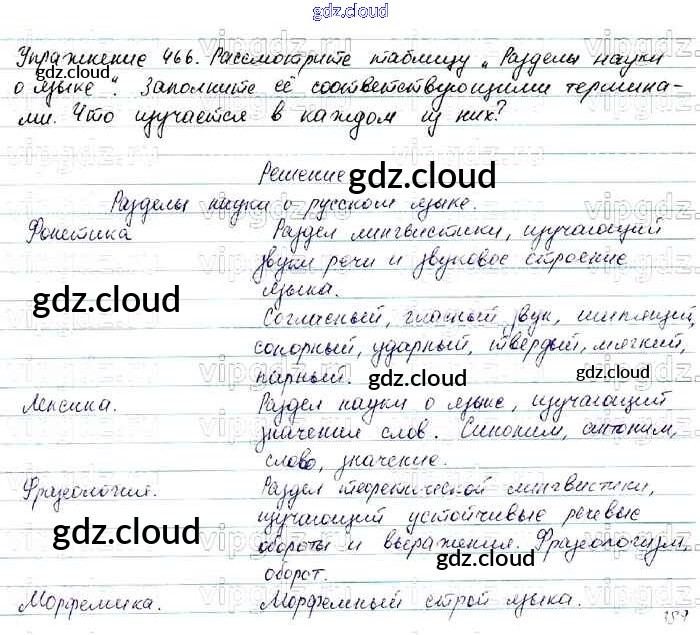 gdz.cloud
Упражнение 466. Рассмотрите таблицу „Разделы науки
gdz.cloud
о языке“. Заполните её соответствующими термина-
ми. Что изучается в каждом из них?
Решение
gdz.cloud
Разделы науки о русском языке.
Фонетика Раздел лингвистики, изучающий
звуки речи и звуковое строение
языка.
gdz.cloud
Согласный, гласный, звук, шипящий,
gdz.cloud
сонорный, ударный, твёрдый, мягкий,
парный.
gdz.cloud gdz.cloud
Лексика. Раздел науки о языке, изучающий
значения слов. Синоним, антоним,
слово, значение.
Фразеология. Раздел теоретической лингвистики,
изучающий устойчивые речевые
gdz.cloud
обороты и выражения. Фразеологизм,
gdz.cloud
оборот.
Морфемика. Морфемный строй языка.